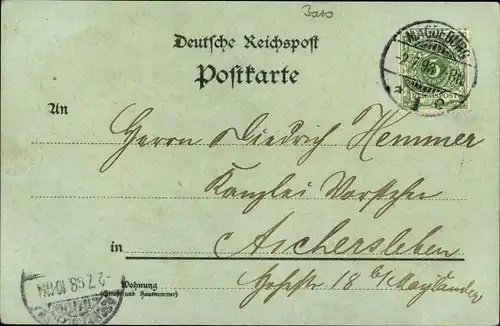 3010
Deutsche Reichspost
Postkarte
MAGDEBURG
2.7.98
REICHSPOST
An
Herrn Diedrich Hemmer
Kanzlei Vorsteher
in Aschersleben
Wohnung
(Straße und Hausnummer)
18 b/ Mayländer
2.7.98